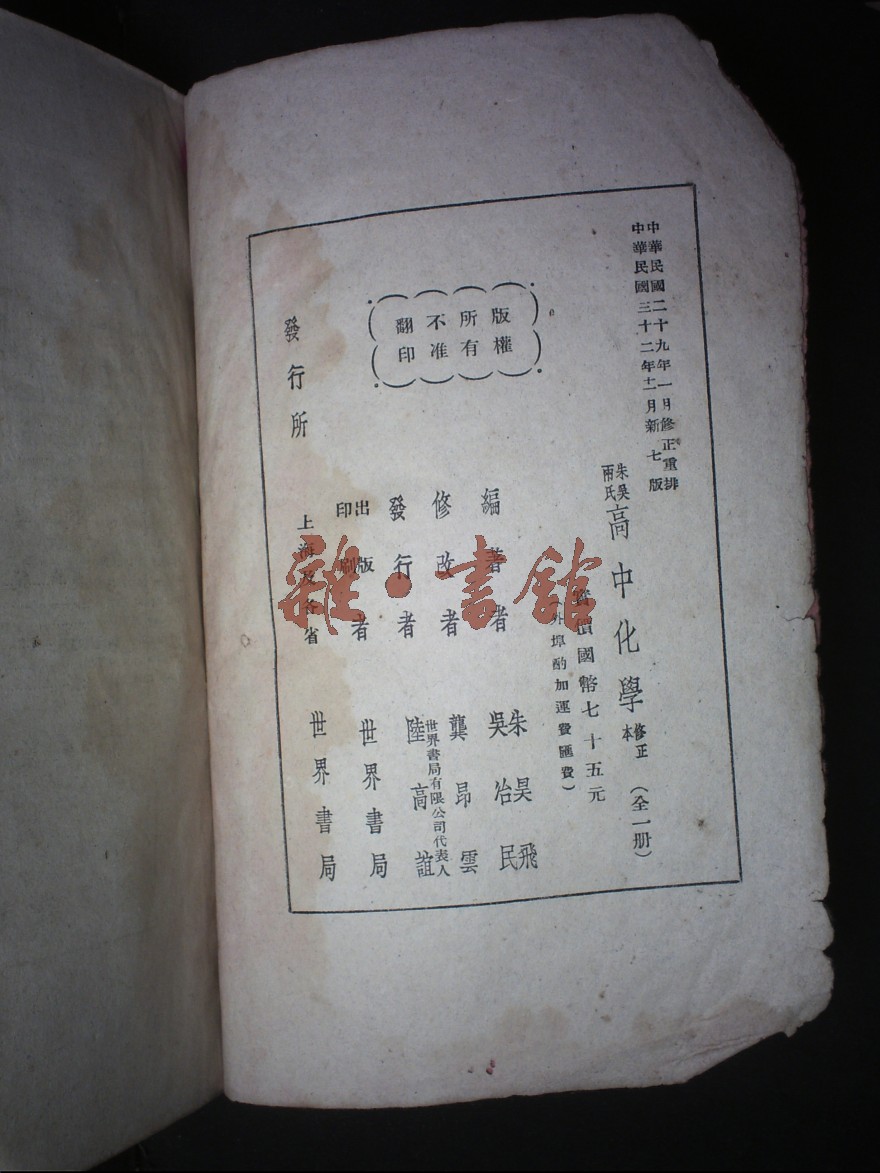 中華民國二十九年一月修正重排
中華民國三十二年十二月新七版
朱吳兩氏高中化學修正本（全一册）
實價國幣七十五元
（外埠酌加運費匯費）
版權所有不准翻印
編著者 朱昊飛 吳冶民
修改者 龔昂雲
發行者 世界書局有限公司代表人 陸高誼
出版印刷者 世界書局
發行所 上海及各省 世界書局
雜·書館